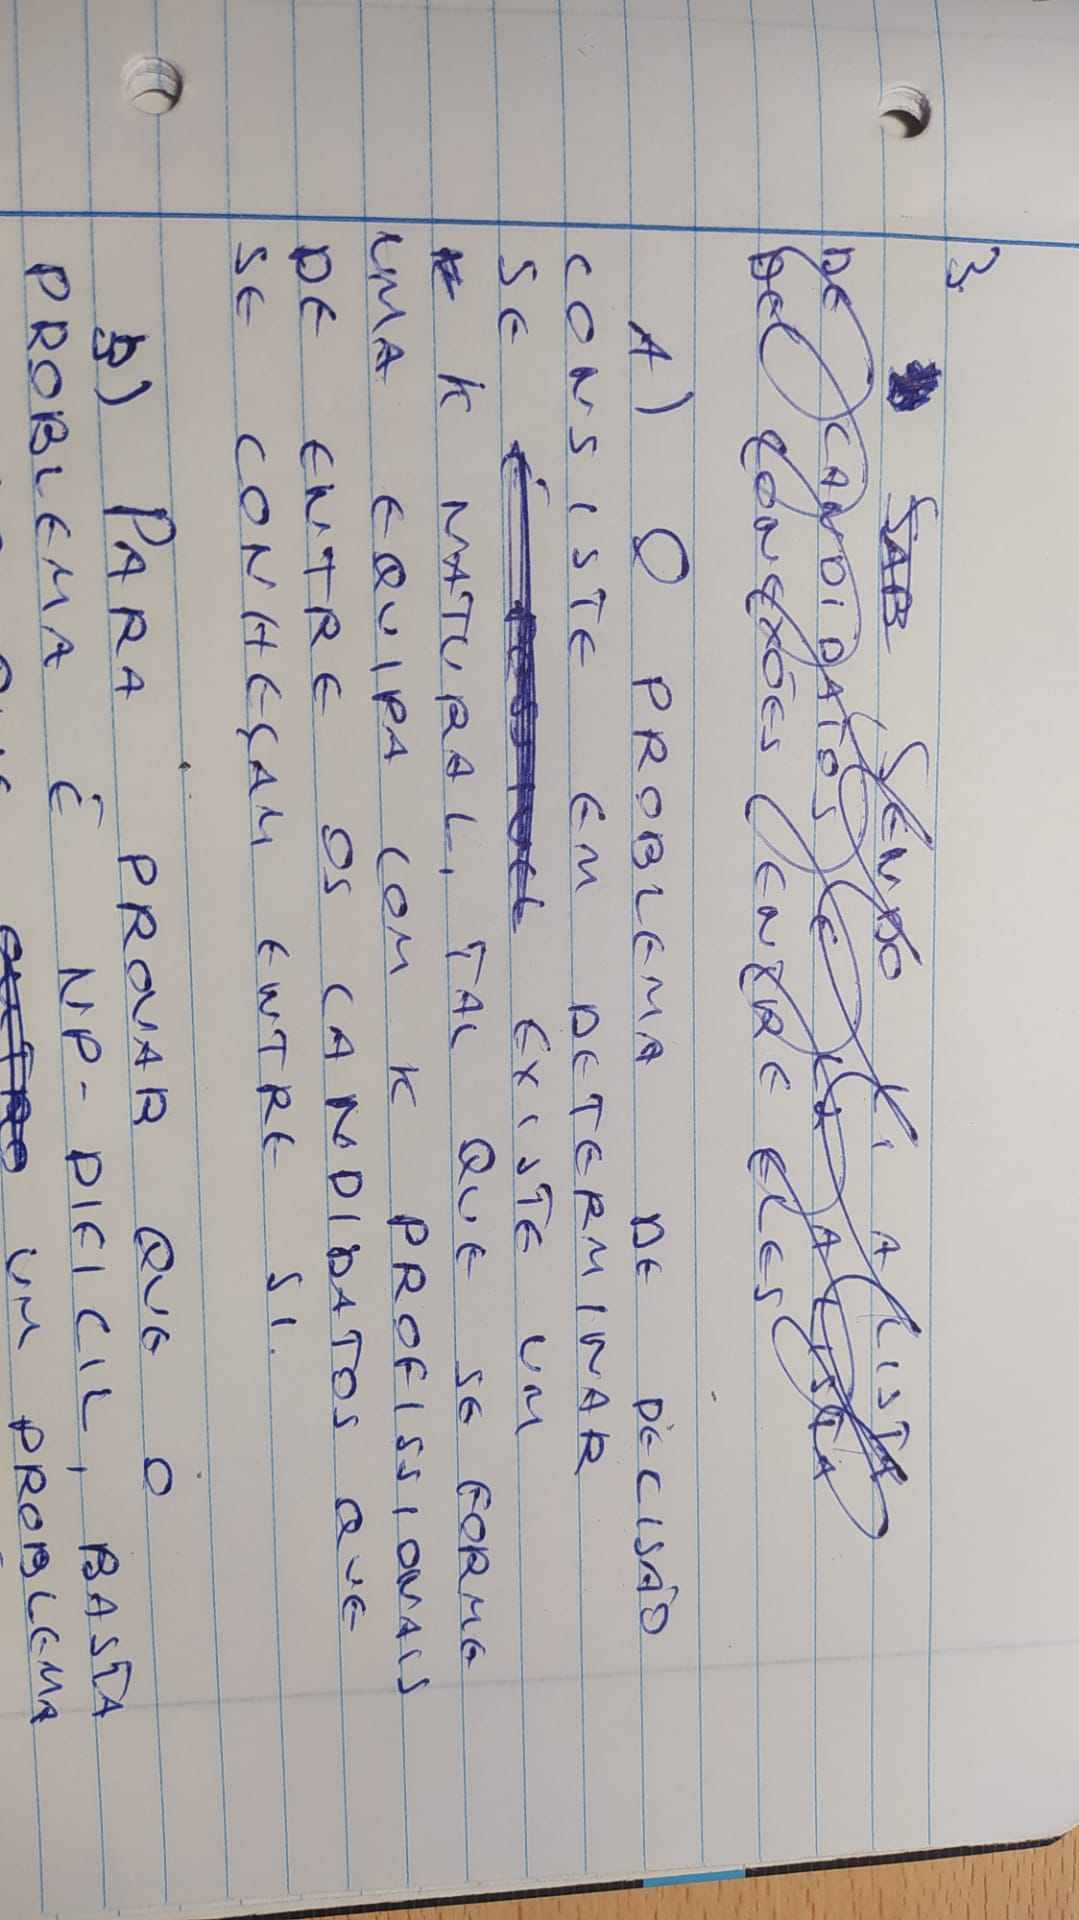 3.
SAB SENDO L1 A LISTA
DE CANDIDATOS E L2 A LISTA
DE CONEXÕES ENTRE ELES
A) O PROBLEMA DE DECISÃO
CONSISTE EM DETERMINAR
SE É POSSIVEL EXISTE UM
K K NATURAL, TAL QUE SE FORME
UMA EQUIPA COM K PROFISSIONAIS
DE ENTRE OS CANDIDATOS QUE
SE CONHEÇAM ENTRE SI.
B) PARA PROVAR QUE O
PROBLEMA É NP-DIFICIL, BASTA
QUE OUTRO UM PROBLEMA